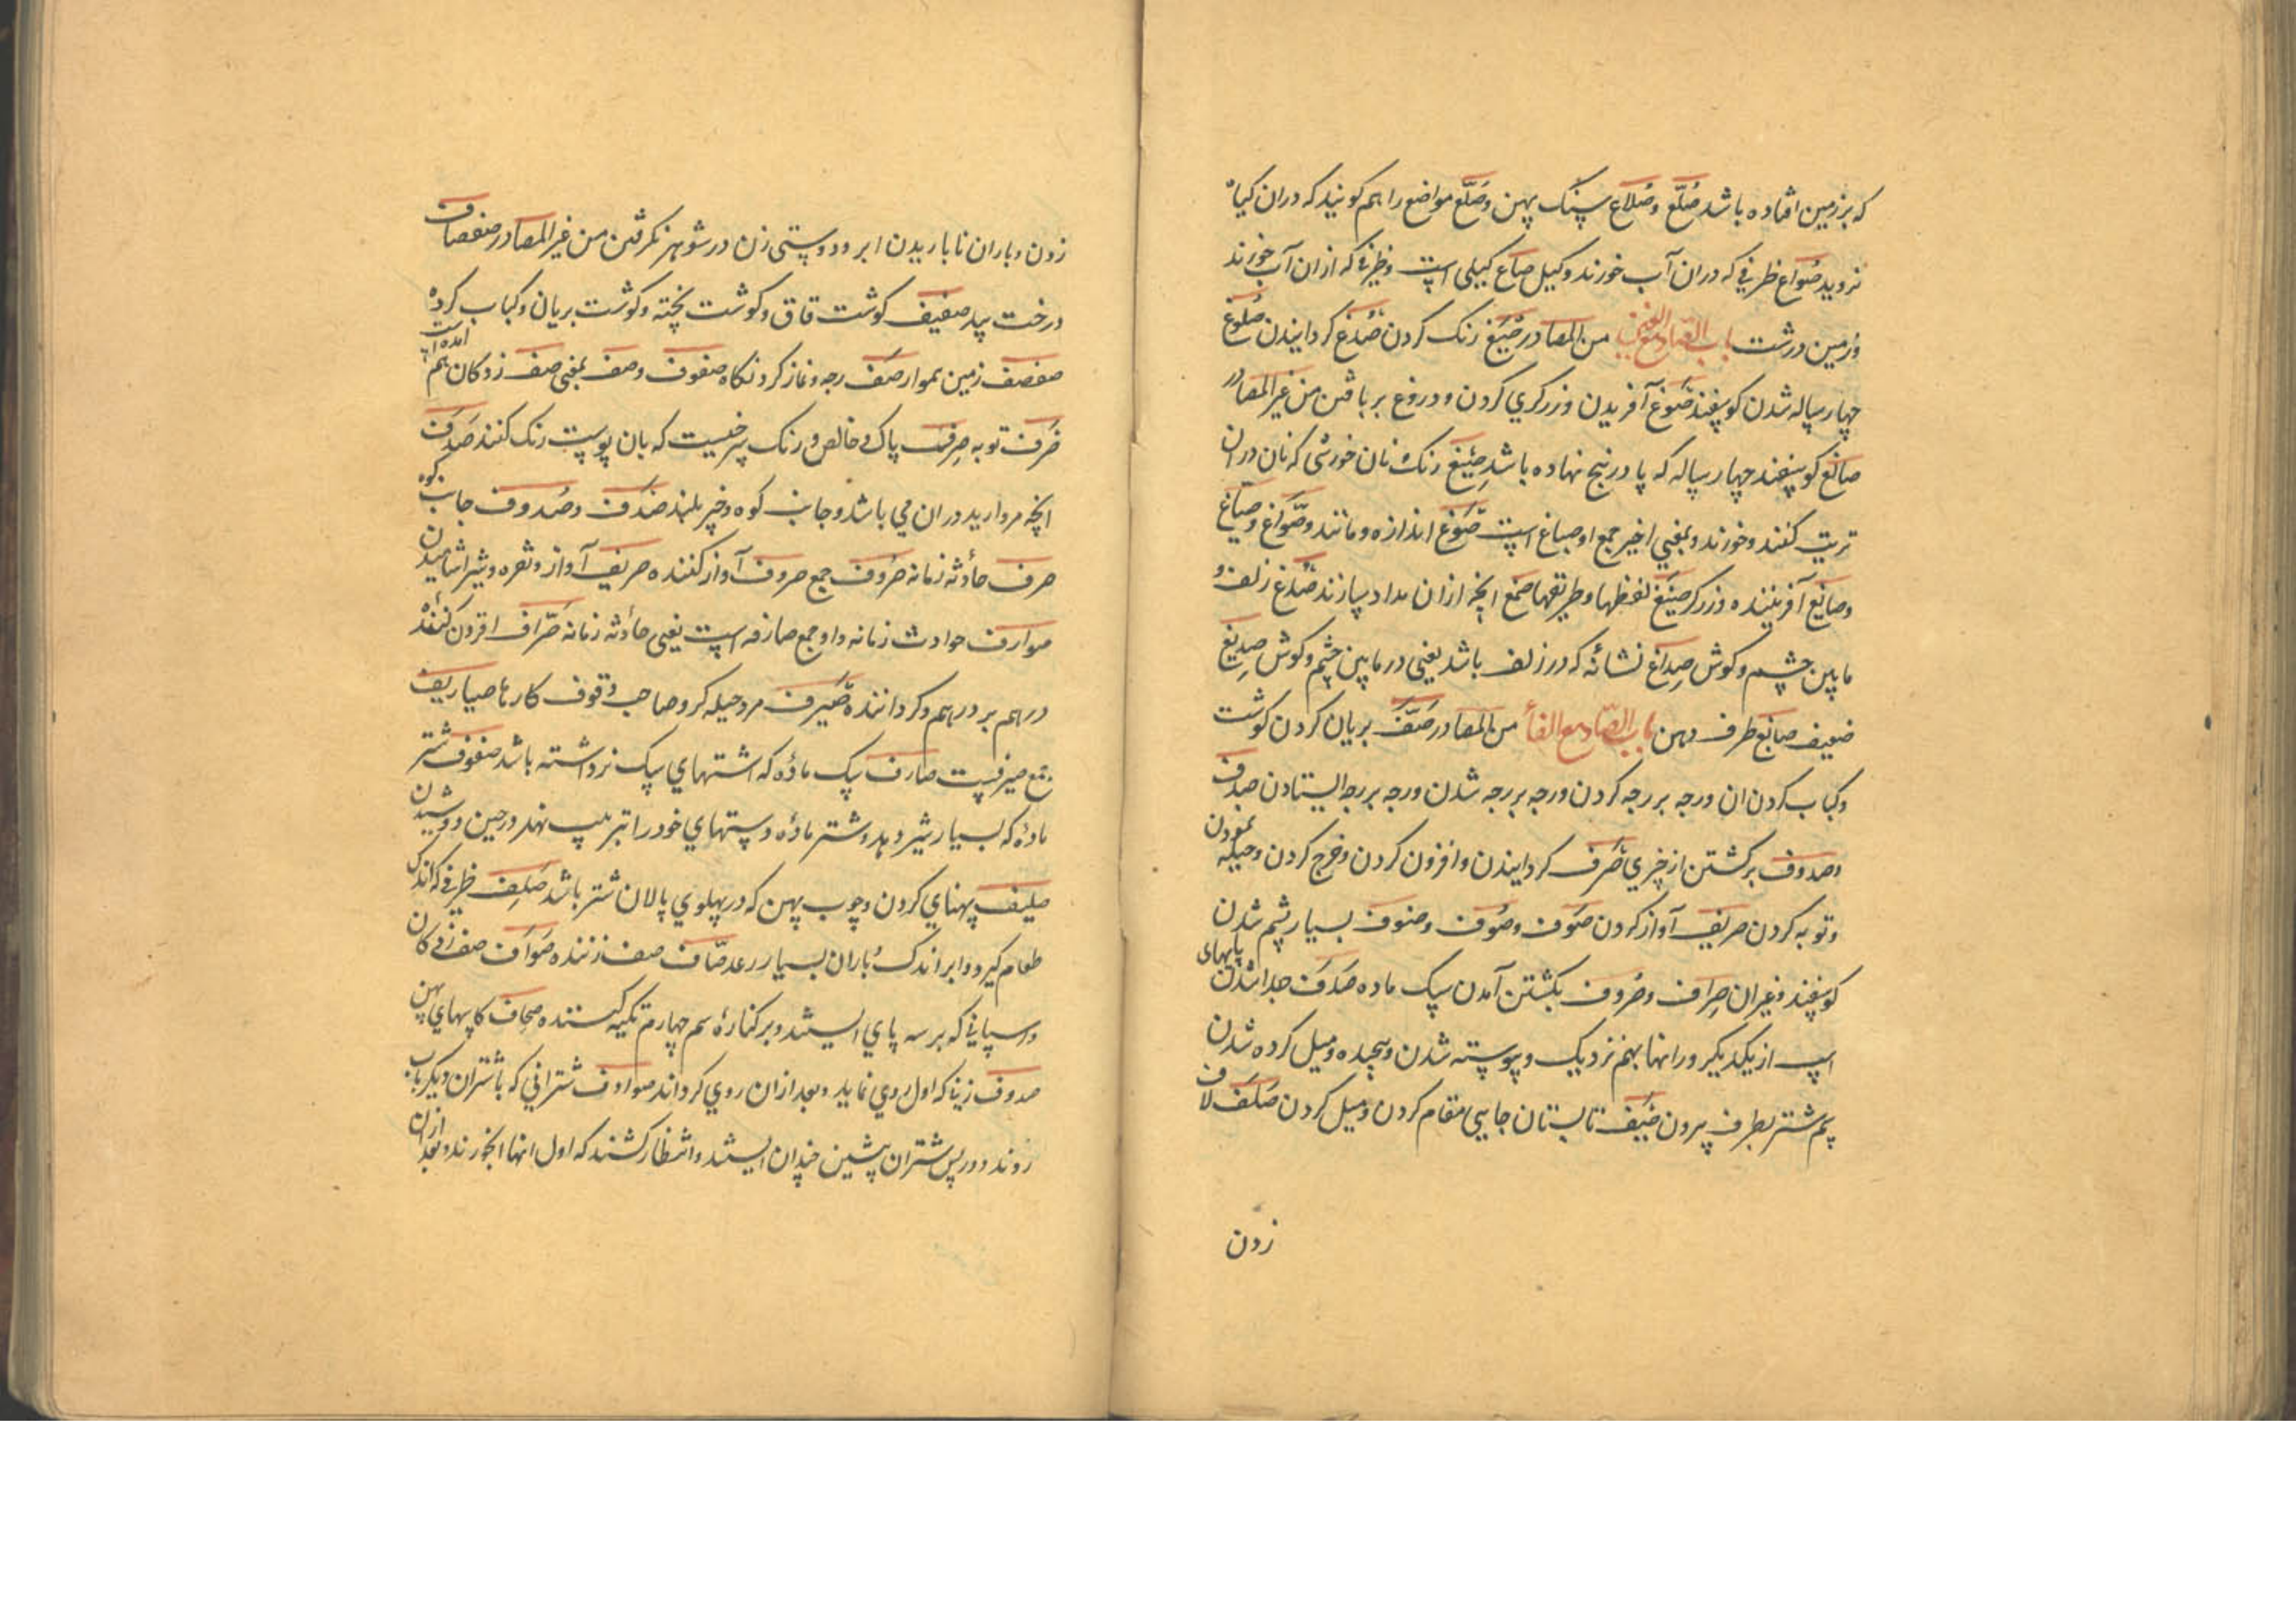 که بر زمین افتاده باشد صُلَّع وصُلّاع سنک پهن وصُلَّع مواضع را هم کویند که دران کیاه
نروید صُواع ظرفی که دران آب خورند وکیل صاع کیلی است وظرفی که ازان آب خورند
وزمین درشت باب الصّاد مع الغین من المصادر صَبغ رنک کردن صَدغ کردانیدن صُلوغ
چهار ساله شدن کوسفند صَوغ آفریدن وزرکری کردن ودروغ بربافتن من غیر المصادر
صالغ کوسفند چهار ساله که پا در پنج نهاده باشد صِبغ رنک ونان خورشی که نان دران
تریت کنند وخورند وبمعنی اخیر جمع او صباغ است صَوغ اندازه ومانند وصَوّاغ وصیّاغ
وصایغ آفریننده وزرکر صِیَغ لفظها وطریقها صَمغ انچه ازان مداد سازند صُدغ زلف و
مابین چشم وکوش صِداغ نشانه که در زلف باشد یعنی در مابین چشم وکوش صِدیغ
ضعیف صامغ طرف دهن باب الصّاد مع الفاء من المصادر صَفّ بریان کردن کوشت
وکباب کردن ان ورجه بر رجه کردن ورجه بر رجه شدن ورجه بر رجه ایستادن صَدف
وصدوف برکشتن از چیزی صَرف کردانیدن وافزون کردن وخرج کردن وحیله نمودن
وتوبه کردن صریف آواز کردن صَوف وصُوف وصنوف بسیار پشم شدن
کوسفند وغیران صِراف وصُروف بکشتن آمدن سک ماده صَدَف جدا شدن پایهای
اسپ از یکدیکر ورانها بهم نزدیک وپیوسته شدن وپیچیده ومیل کرده شدن
سم شتر بطرف بیرون صَیف تابستان جایی مقام کردن ومیل کردن صَلَف لاف
زدن
زدن وباران نا باریدن ابر ودوستی زن در شوهر نکرفتن من غیر المصادر صفصاف
درخت بید صفیف کوشت قاق وکوشت پخته وکوشت بریان وکباب کرده
صفصف زمین هموار صَف رجه ونماز کردنکاه صفوف وصف بمعنی صف زدکان هم آمده است
صَرف توبه صِرف پاک وخالص ورنک سرخیست که بان پوست رنک کنند صَدَف
انچه مروارید دران می باشد وجانب کوه وچیز بلند صَدَف وصُدوف جانب کوه
صرف حادثه زمانه صُروف جمع صروف آواز کننده صریف آواز ونقره وشیر اشامیدن
صوارف حوادث زمانه واو جمع صارفه است یعنی حادثه زمانه صَرّاف افزون کننده
دراهم بر دراهم وکرداننده صَیرف مرد حیله کر وصاحب وقوف کارها صیاریف
جمع صیرفست صارف سک ماده که اشتهای سک نر داشته باشد صفوف شتر
ماده که بسیار شیر دهد وشتر ماده دستهای خود را برابر نهد در حین دوشیدن
صلیف پهنای کردن وچوب پهن که در پهلوی پالان شتر باشد صَلِف ظرفی که اندک
طعام کیرد وابر اندک باران بسیار رعد صَافّ صف زننده صَوافّ صف زدکان
واسپانی که بر سه پای ایستند وبر کناره سم چهارم تکیه کننده صِحاف کاسهای پهن
صدوف زنیکه اول روی نماید وبعد ازان روی کرداند صوادف شترانی که با شتران دیکر باب
روند ودر پس شتران پیشین چندان ایستند وانتظار کشند که اول انها ابخورند وبعد ازان